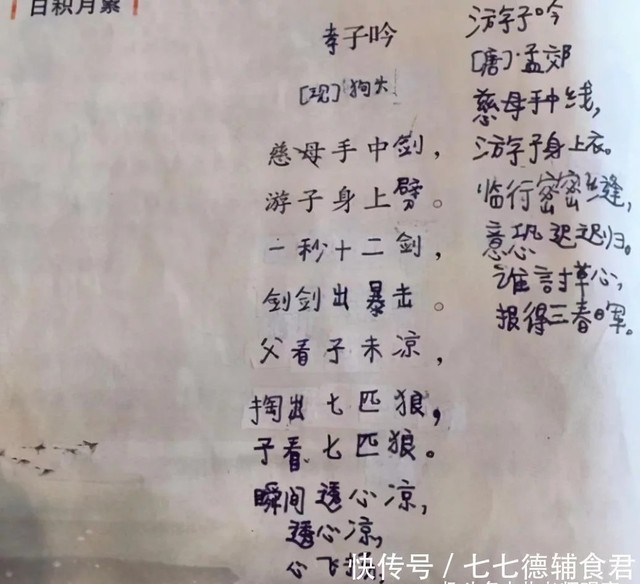 日积月累
孝子吟
[现]狗大
慈母手中剑,
游子身上劈。
一秒十二剑,
剑剑出暴击。
父看子未凉,
掏出七匹狼,
子看七匹狼。
瞬间透心凉,
透心凉,
心飞
游子吟
[唐]·孟郊
慈母手中线,
游子身上衣。
临行密密缝,
意恐迟迟归。
谁討草心,
报得三春晖。
快传号 / 七七德辅食君